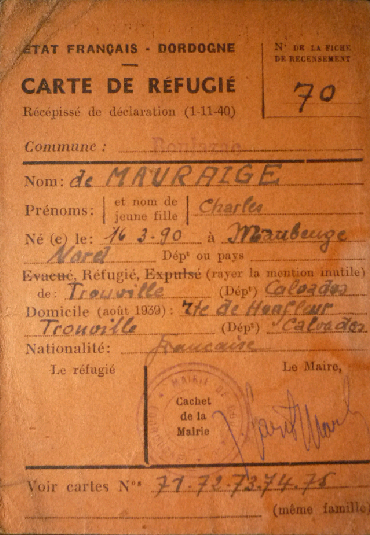 ÉTAT FRANÇAIS - DORDOGNE
N° DE LA FICHE
DE RECENSEMENT
70
CARTE DE RÉFUGIÉ
Récépissé de déclaration (1-11-40)
Commune : Boulazac
Nom : de MAURAIGE
Prénoms : et nom de jeune fille Charles
Né (e) le : 16 3-90 à Maubeuge
Nord Dépt ou pays
Evacué, Réfugié, Expulsé (rayer la mention inutile)
de : Trouville (Dépt) Calvados
Domicile (août 1939) : Rte de Honfleur
Trouville (Dépt) Calvados
Nationalité : Francaise
Le réfugié Le Maire,
Cachet
de la
Mairie
Voir cartes Nos 71.72.73.74.75
(même famille)